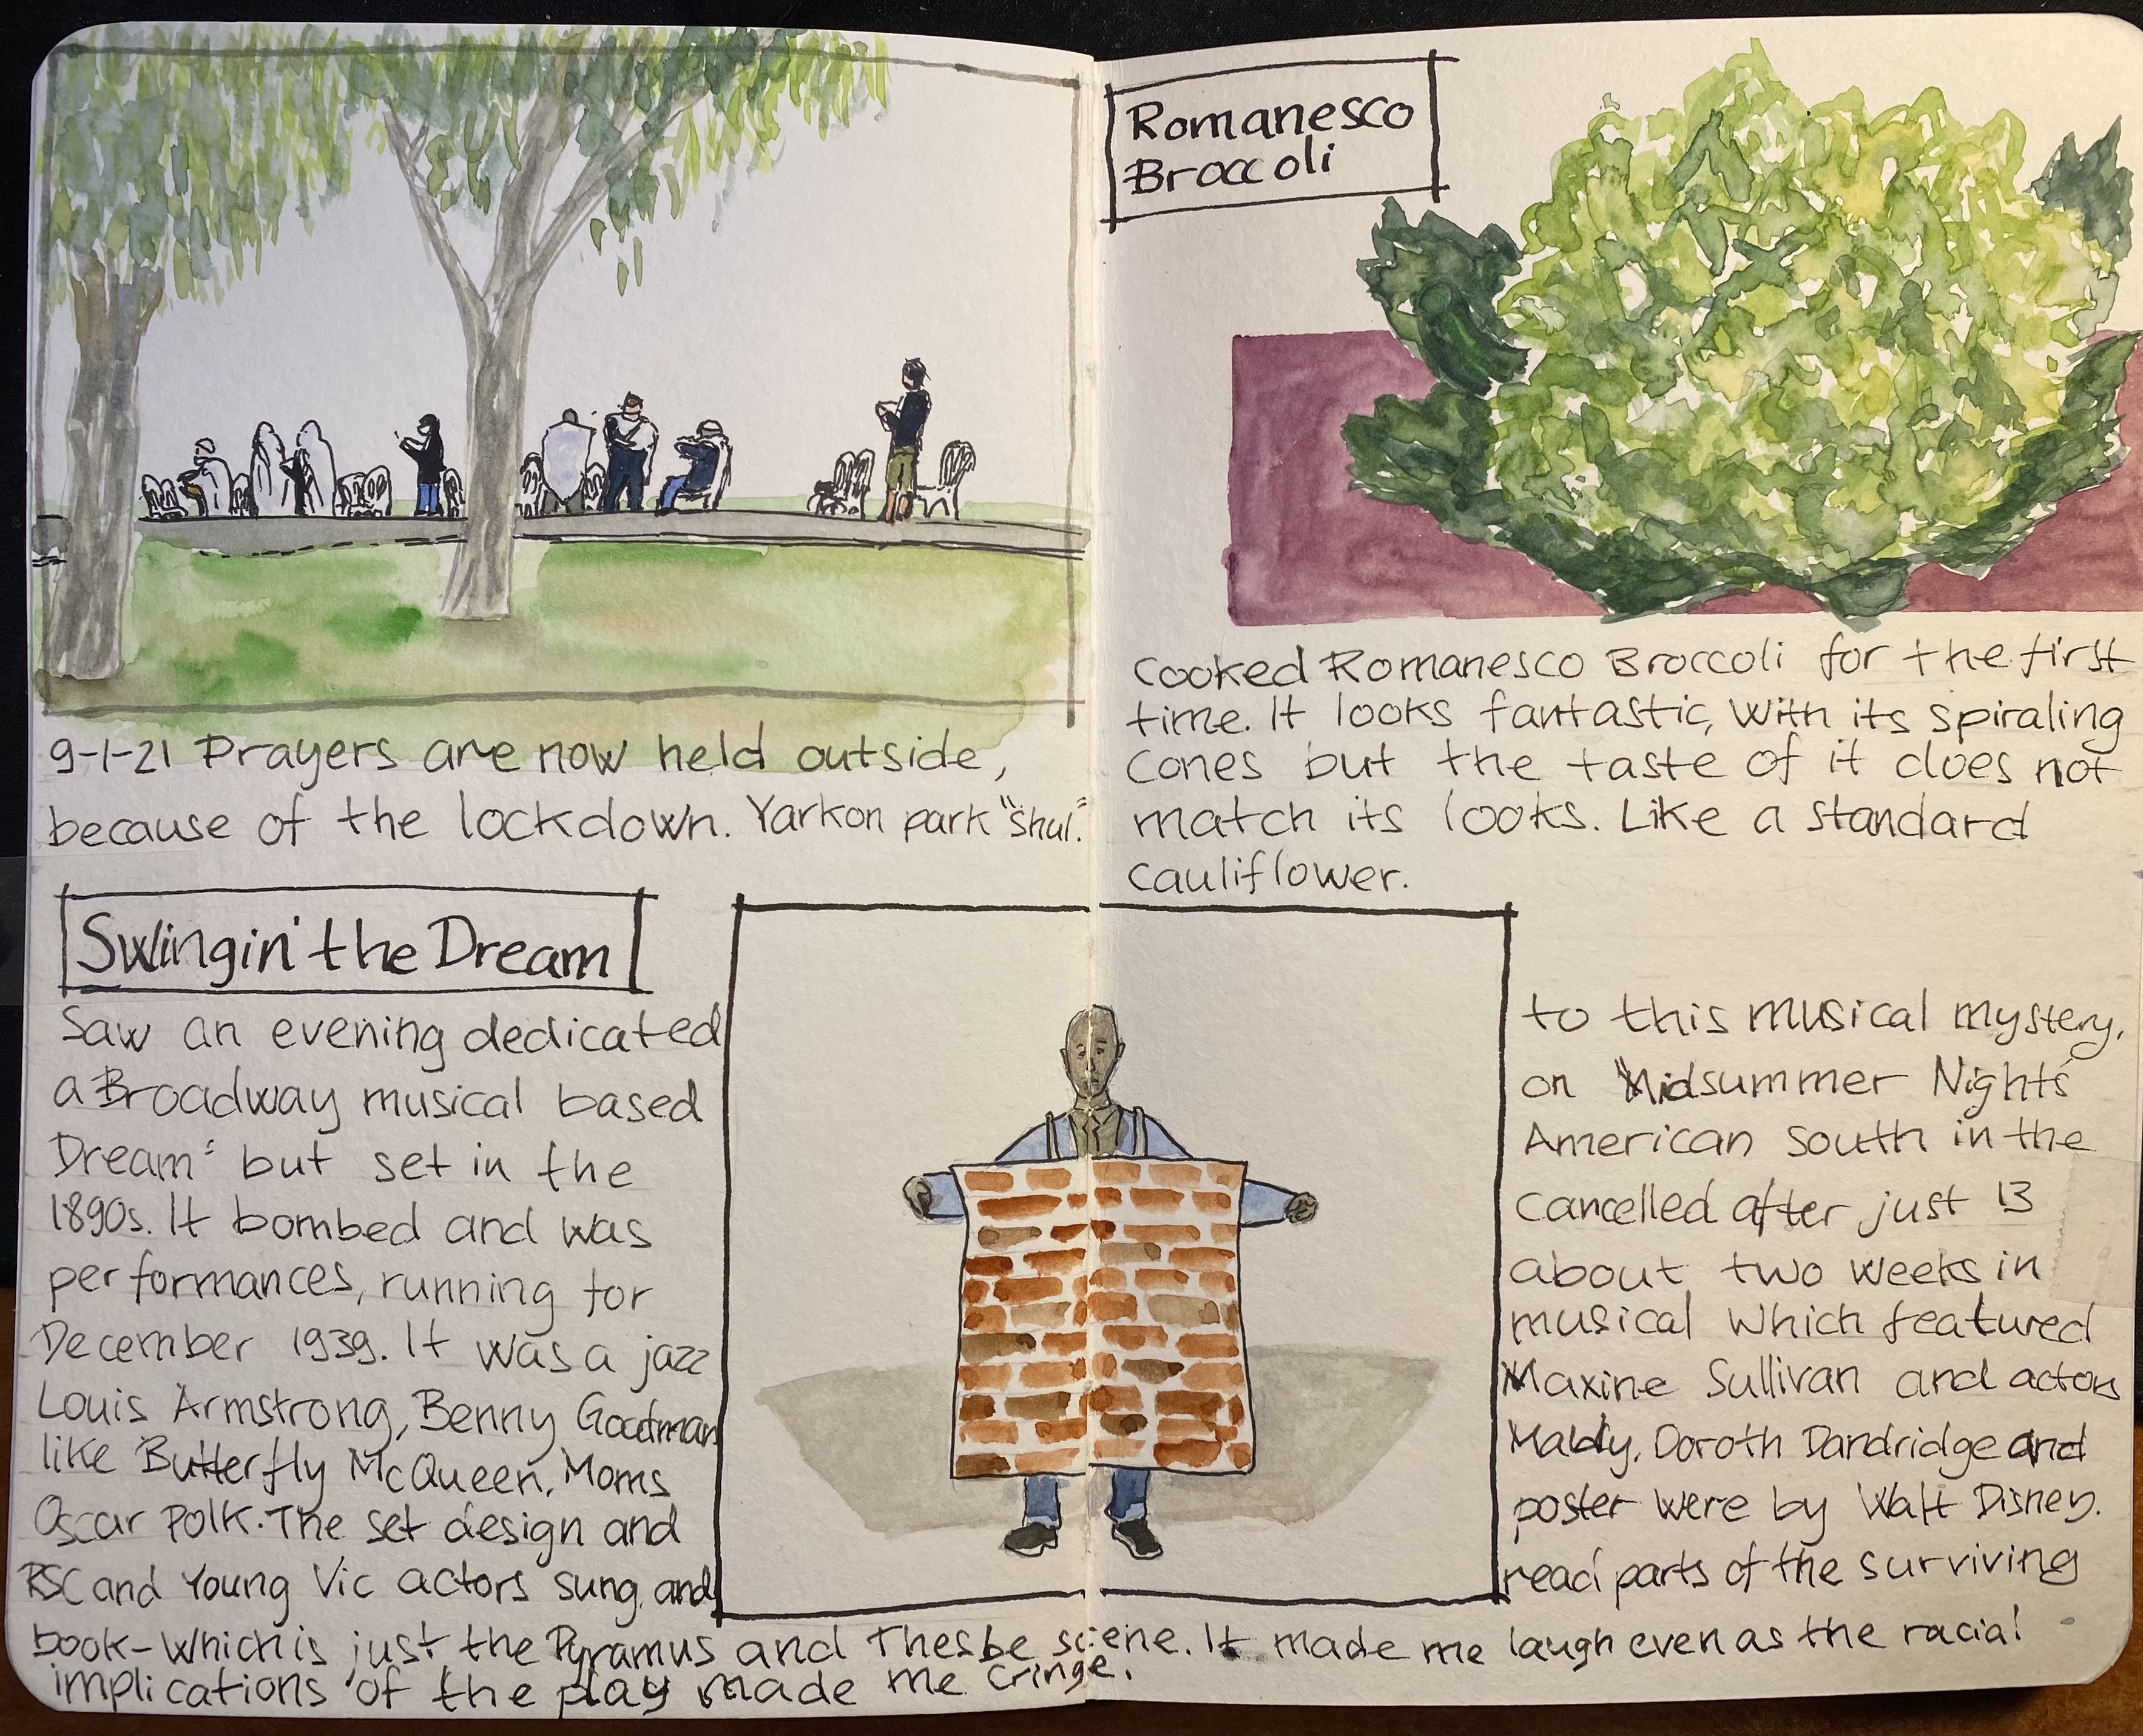 9-1-21 Prayers are now held outside,
because of the lockdown. Yarkon park "Shul."
Romanesco
Broccoli
Cooked Romanesco Broccoli for the first
time. It looks fantastic, with its spiraling
cones but the taste of it does not
match its looks. Like a standard
cauliflower.
Swingin' the Dream
Saw an evening dedicated to this musical mystery,
a Broadway musical based on "Midsummer Nights
Dream" but set in the American South in the
1890s. It bombed and was cancelled after just 13
performances, running for about two weeks in
December 1939. It was a jazz musical which featured
Louis Armstrong, Benny Goodman Maxine Sullivan and actors
like Butterfly McQueen, Moms Mably, Doroth Dandridge and
Oscar Polk. The set design and poster were by Walt Disney.
RSC and Young Vic actors sung, and read parts of the surviving
book - which is just the Pyramus and Thesbe scene. It made me laugh even as the racial
implications of the play made me cringe.